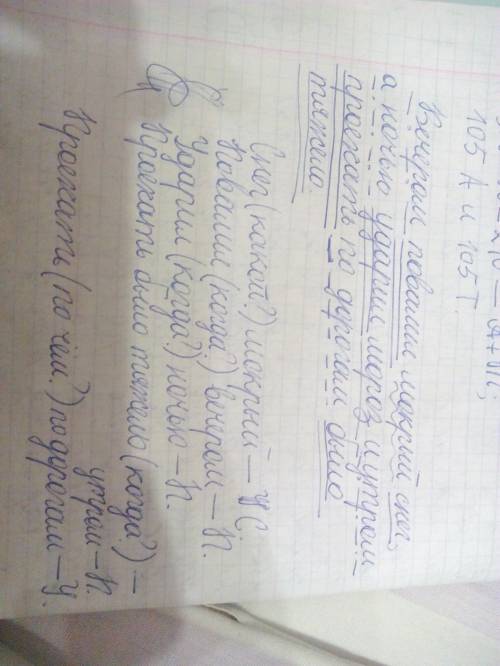 105 А и 105 Т.
Вечером повалил мокрый снег,
а ночью ударил мороз, и утром
проезжать по дорогам было
тяжело
Снег (какой?) мокрый – УС.
Повалил (когда?) вечером – Н.
Ударил (когда?) ночью – Н.
Проезжать было тяжело (когда?) –
утром – Н.
Проезжать (по чём?) по дорогам – У.